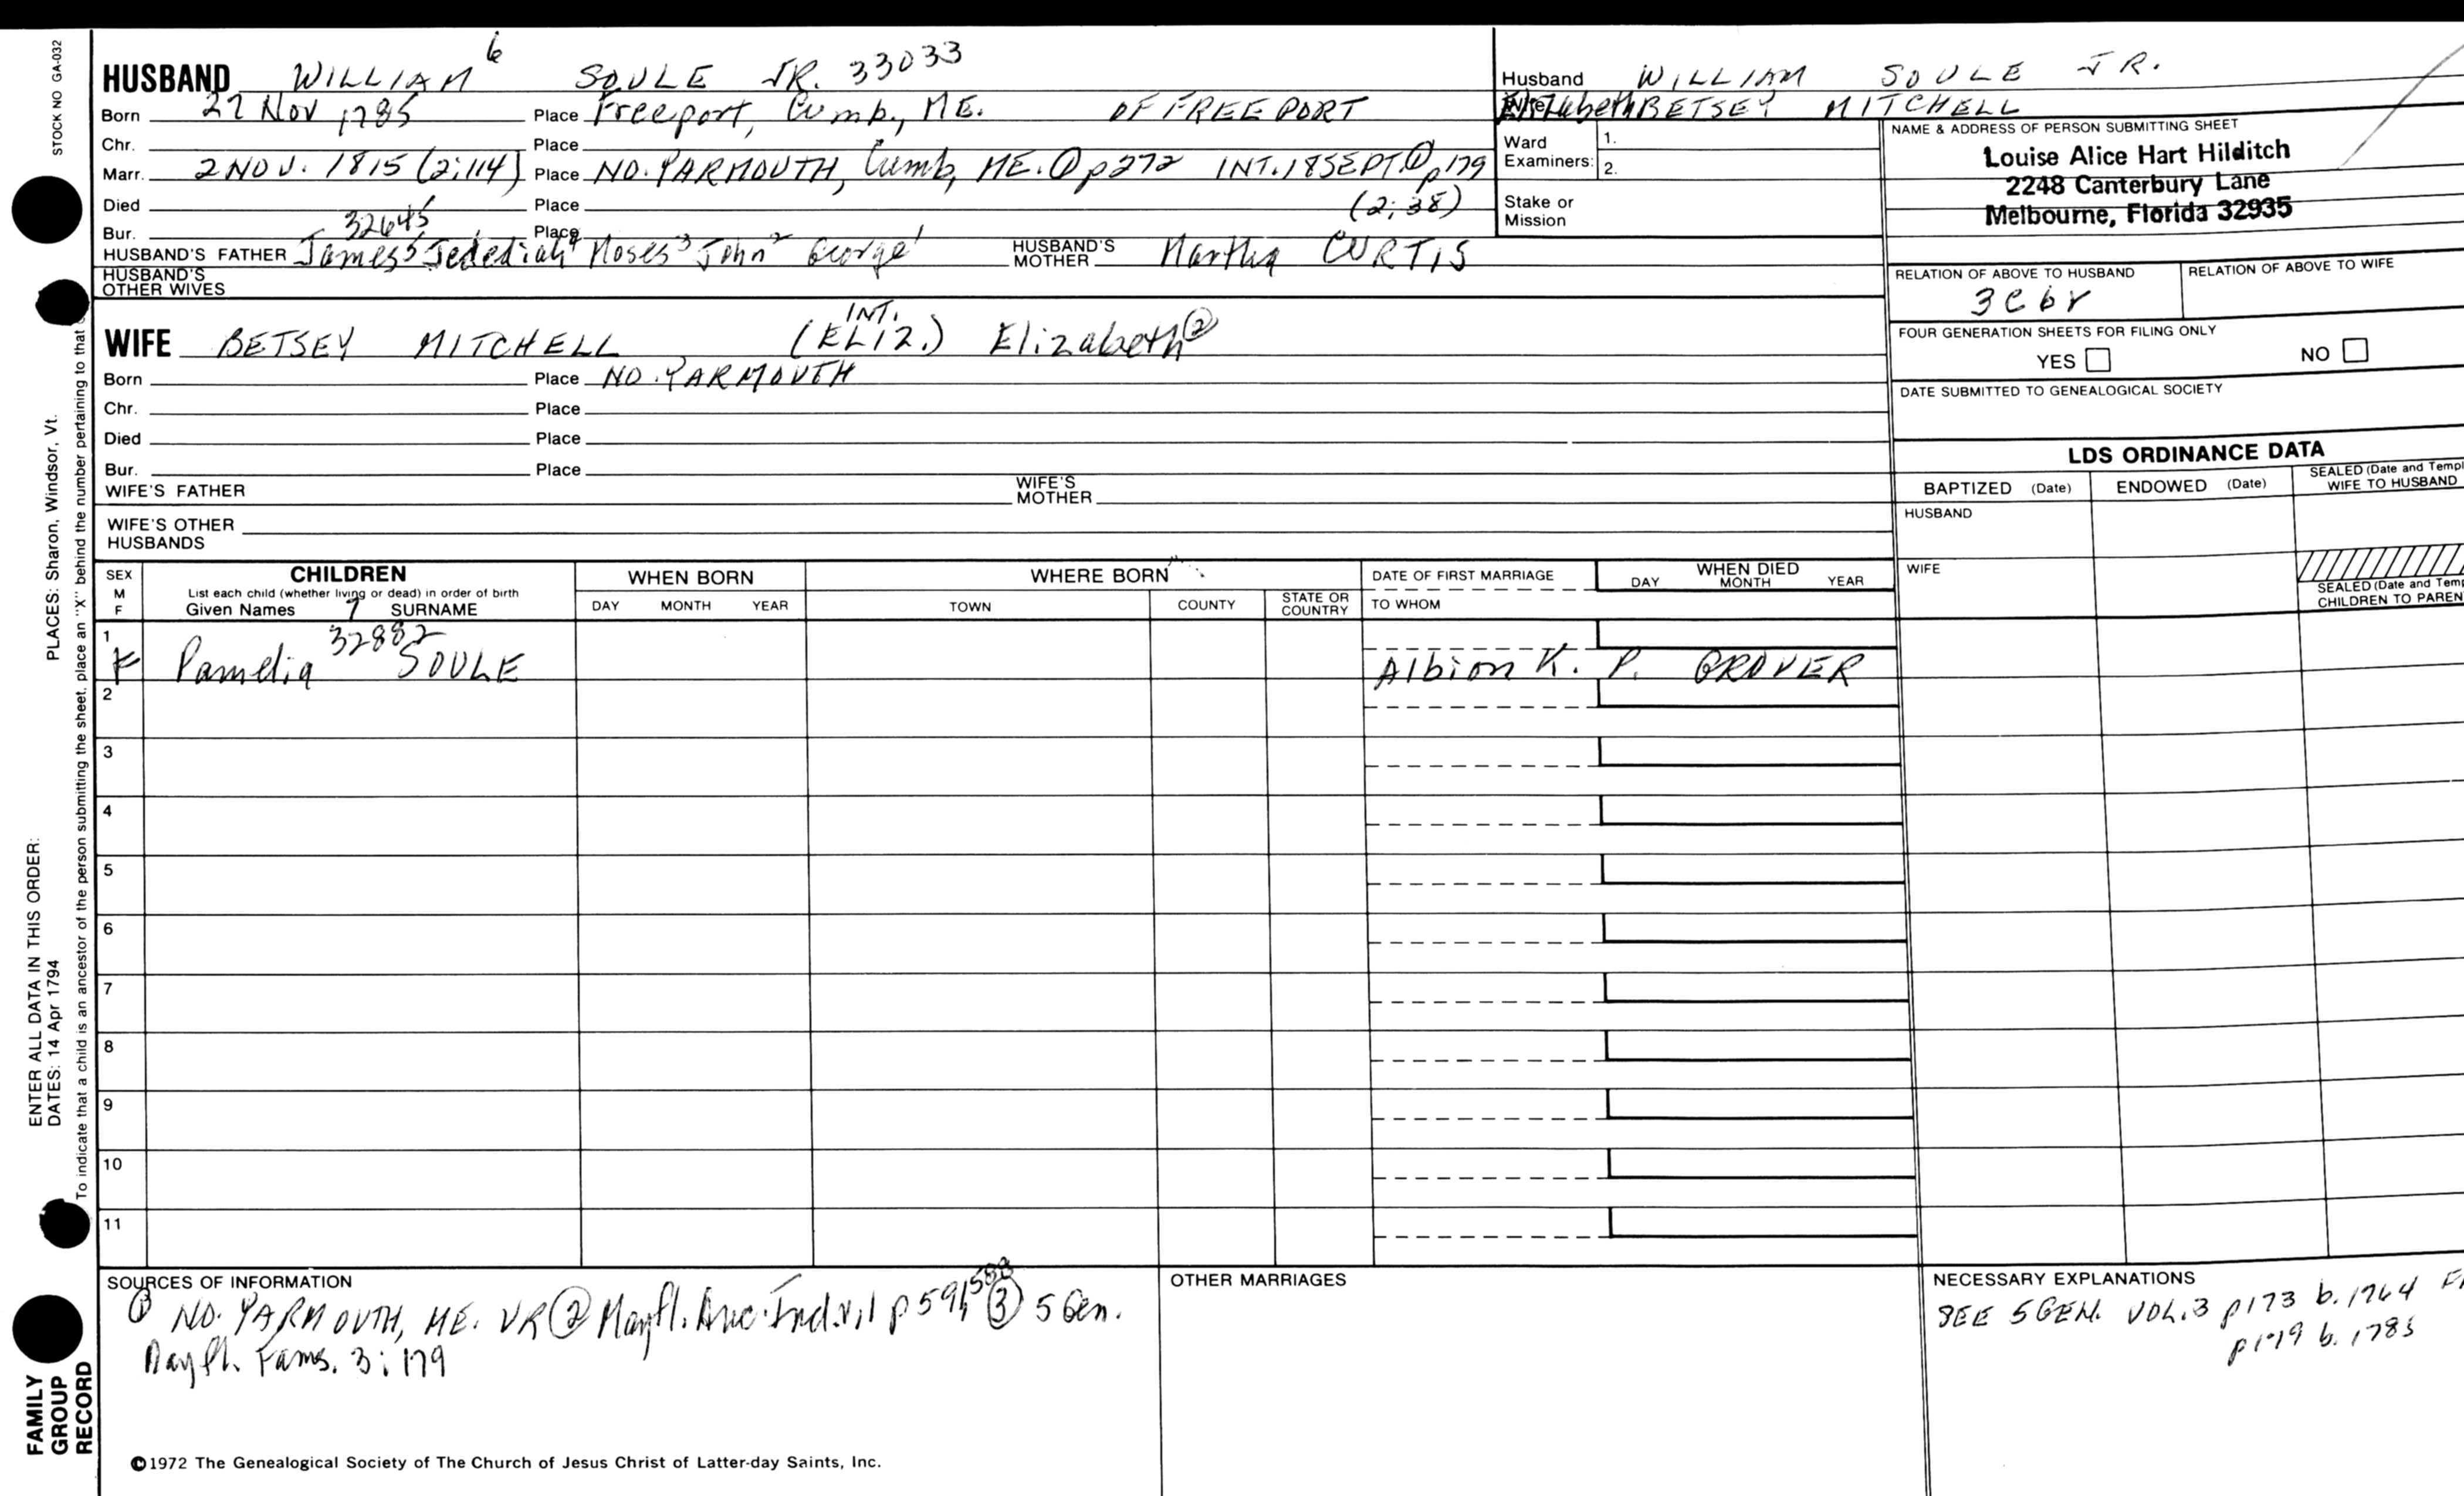 STOCK NO GA-032
HUSBAND WILLIAM 6 SOULE JR. 33033
Born 27 Nov 1785 Place Freeport, Cumb., ME. OF FREEPORT
Chr. Place
Marr. 2 NOV. 1815 (2:114) Place NO. YARMOUTH, Cumb, ME. ① p272 INT. 18 SEPT. ① p179
Died Place (2:38)
Bur. Place
32645
HUSBAND'S FATHER James5 Jedediah4 Moses3 John2 George1 HUSBAND'S MOTHER Martha CURTIS
HUSBAND'S OTHER WIVES
WIFE BETSEY MITCHELL INT. (ELIZ.) Elizabeth②
Born Place NO. YARMOUTH
Chr. Place
Died Place
Bur. Place
WIFE'S FATHER WIFE'S MOTHER
WIFE'S OTHER HUSBANDS
Husband WILLIAM SOULE JR.
Wife Elizabeth BETSEY MITCHELL
Ward Examiners: 1.
2.
Stake or Mission
NAME & ADDRESS OF PERSON SUBMITTING SHEET
Louise Alice Hart Hilditch
2248 Canterbury Lane
Melbourne, Florida 32935
RELATION OF ABOVE TO HUSBAND RELATION OF ABOVE TO WIFE
3C6r
FOUR GENERATION SHEETS FOR FILING ONLY
YES NO
DATE SUBMITTED TO GENEALOGICAL SOCIETY
LDS ORDINANCE DATA
BAPTIZED (Date) ENDOWED (Date) SEALED (Date and Templ
WIFE TO HUSBAND
HUSBAND
WIFE
SEALED (Date and Temp
CHILDREN TO PAREN
SEX M F CHILDREN WHEN BORN WHERE BORN DATE OF FIRST MARRIAGE WHEN DIED
List each child (whether living or dead) in order of birth
Given Names 7 SURNAME DAY MONTH YEAR TOWN COUNTY STATE OR COUNTRY TO WHOM DAY MONTH YEAR
32882
1 F Pamelia SOULE Albion K. P. GROVER
2
3
4
5
6
7
8
9
10
11
SOURCES OF INFORMATION
① NO. YARMOUTH, ME. VR ② Mayfl. Anc. Ind. v.1 p591, 588 ③ 5 Gen.
Mayfl. Fams. 3:179
OTHER MARRIAGES
NECESSARY EXPLANATIONS
SEE 5 GEN. VOL. 3 p173 b. 1764
p179 b. 1785
©1972 The Genealogical Society of The Church of Jesus Christ of Latter-day Saints, Inc.
PLACES: Sharon, Windsor, Vt.
To indicate that a child is an ancestor of the person submitting the sheet, place an "X" behind the number pertaining to that
ENTER ALL DATA IN THIS ORDER:
DATES: 14 Apr 1794
FAMILY
GROUP
RECORD